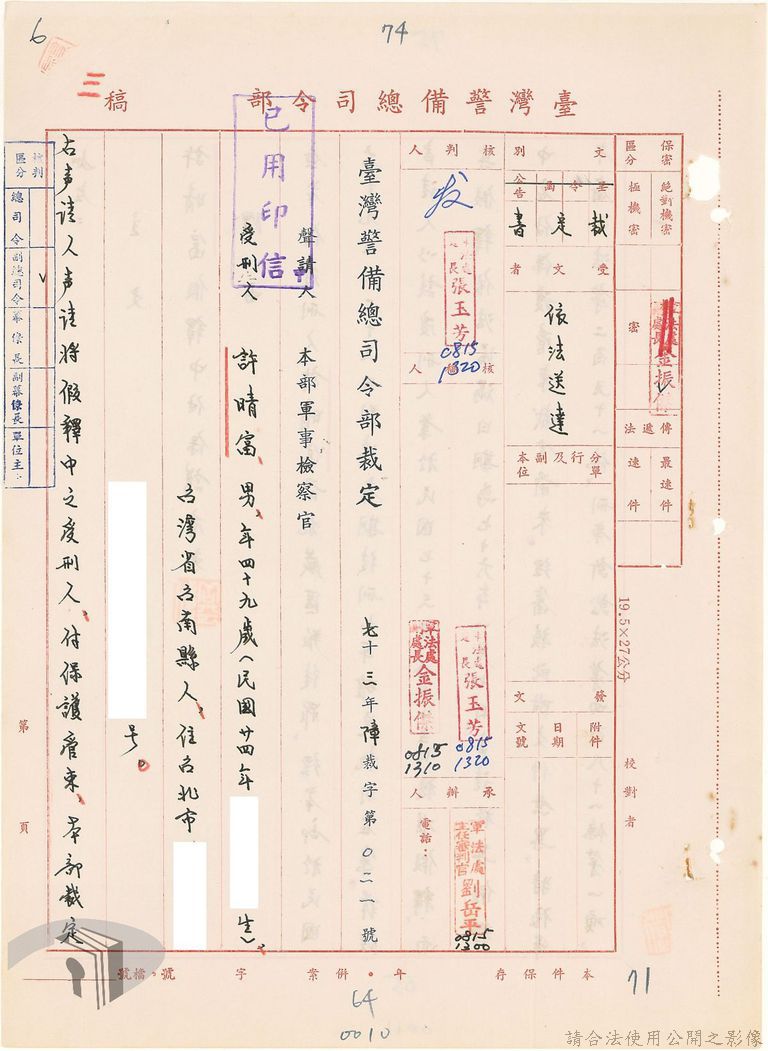 6
74
三
臺灣警備總司令部
稿
保密區分
絕對機密
極機密
密
傳遞法
最速件
速件
文別
令
公告
裁定書
受文者
依法送達
分單
行及副本位
發文
附件
日期
文號
核判人
发
處長張玉芳
0815
1320
核稿人
軍法處處長金振傑
0815
1310
處長張玉芳
0815
1320
承辦人
電話：
軍法處主任審判官劉岳平
0815
1300
19.5×27公分
校對者
臺灣警備總司令部裁定
七十三年障裁字第〇二一號
聲請人
本部軍事檢察官
已用印信
受刑人
許晴富、男、年四十九歲（民國廿四年
生）、
台灣省台南縣人、住台北市
号。
右声請人声請將假釋中之受刑人、付保護管束、本部裁定
核判區分
總司令
副總司令
v
幕僚長
副幕僚長
單位主
第
頁
本件保存
年
併案
字
號
檔號
71
64
0010
請合法使用公開之影像